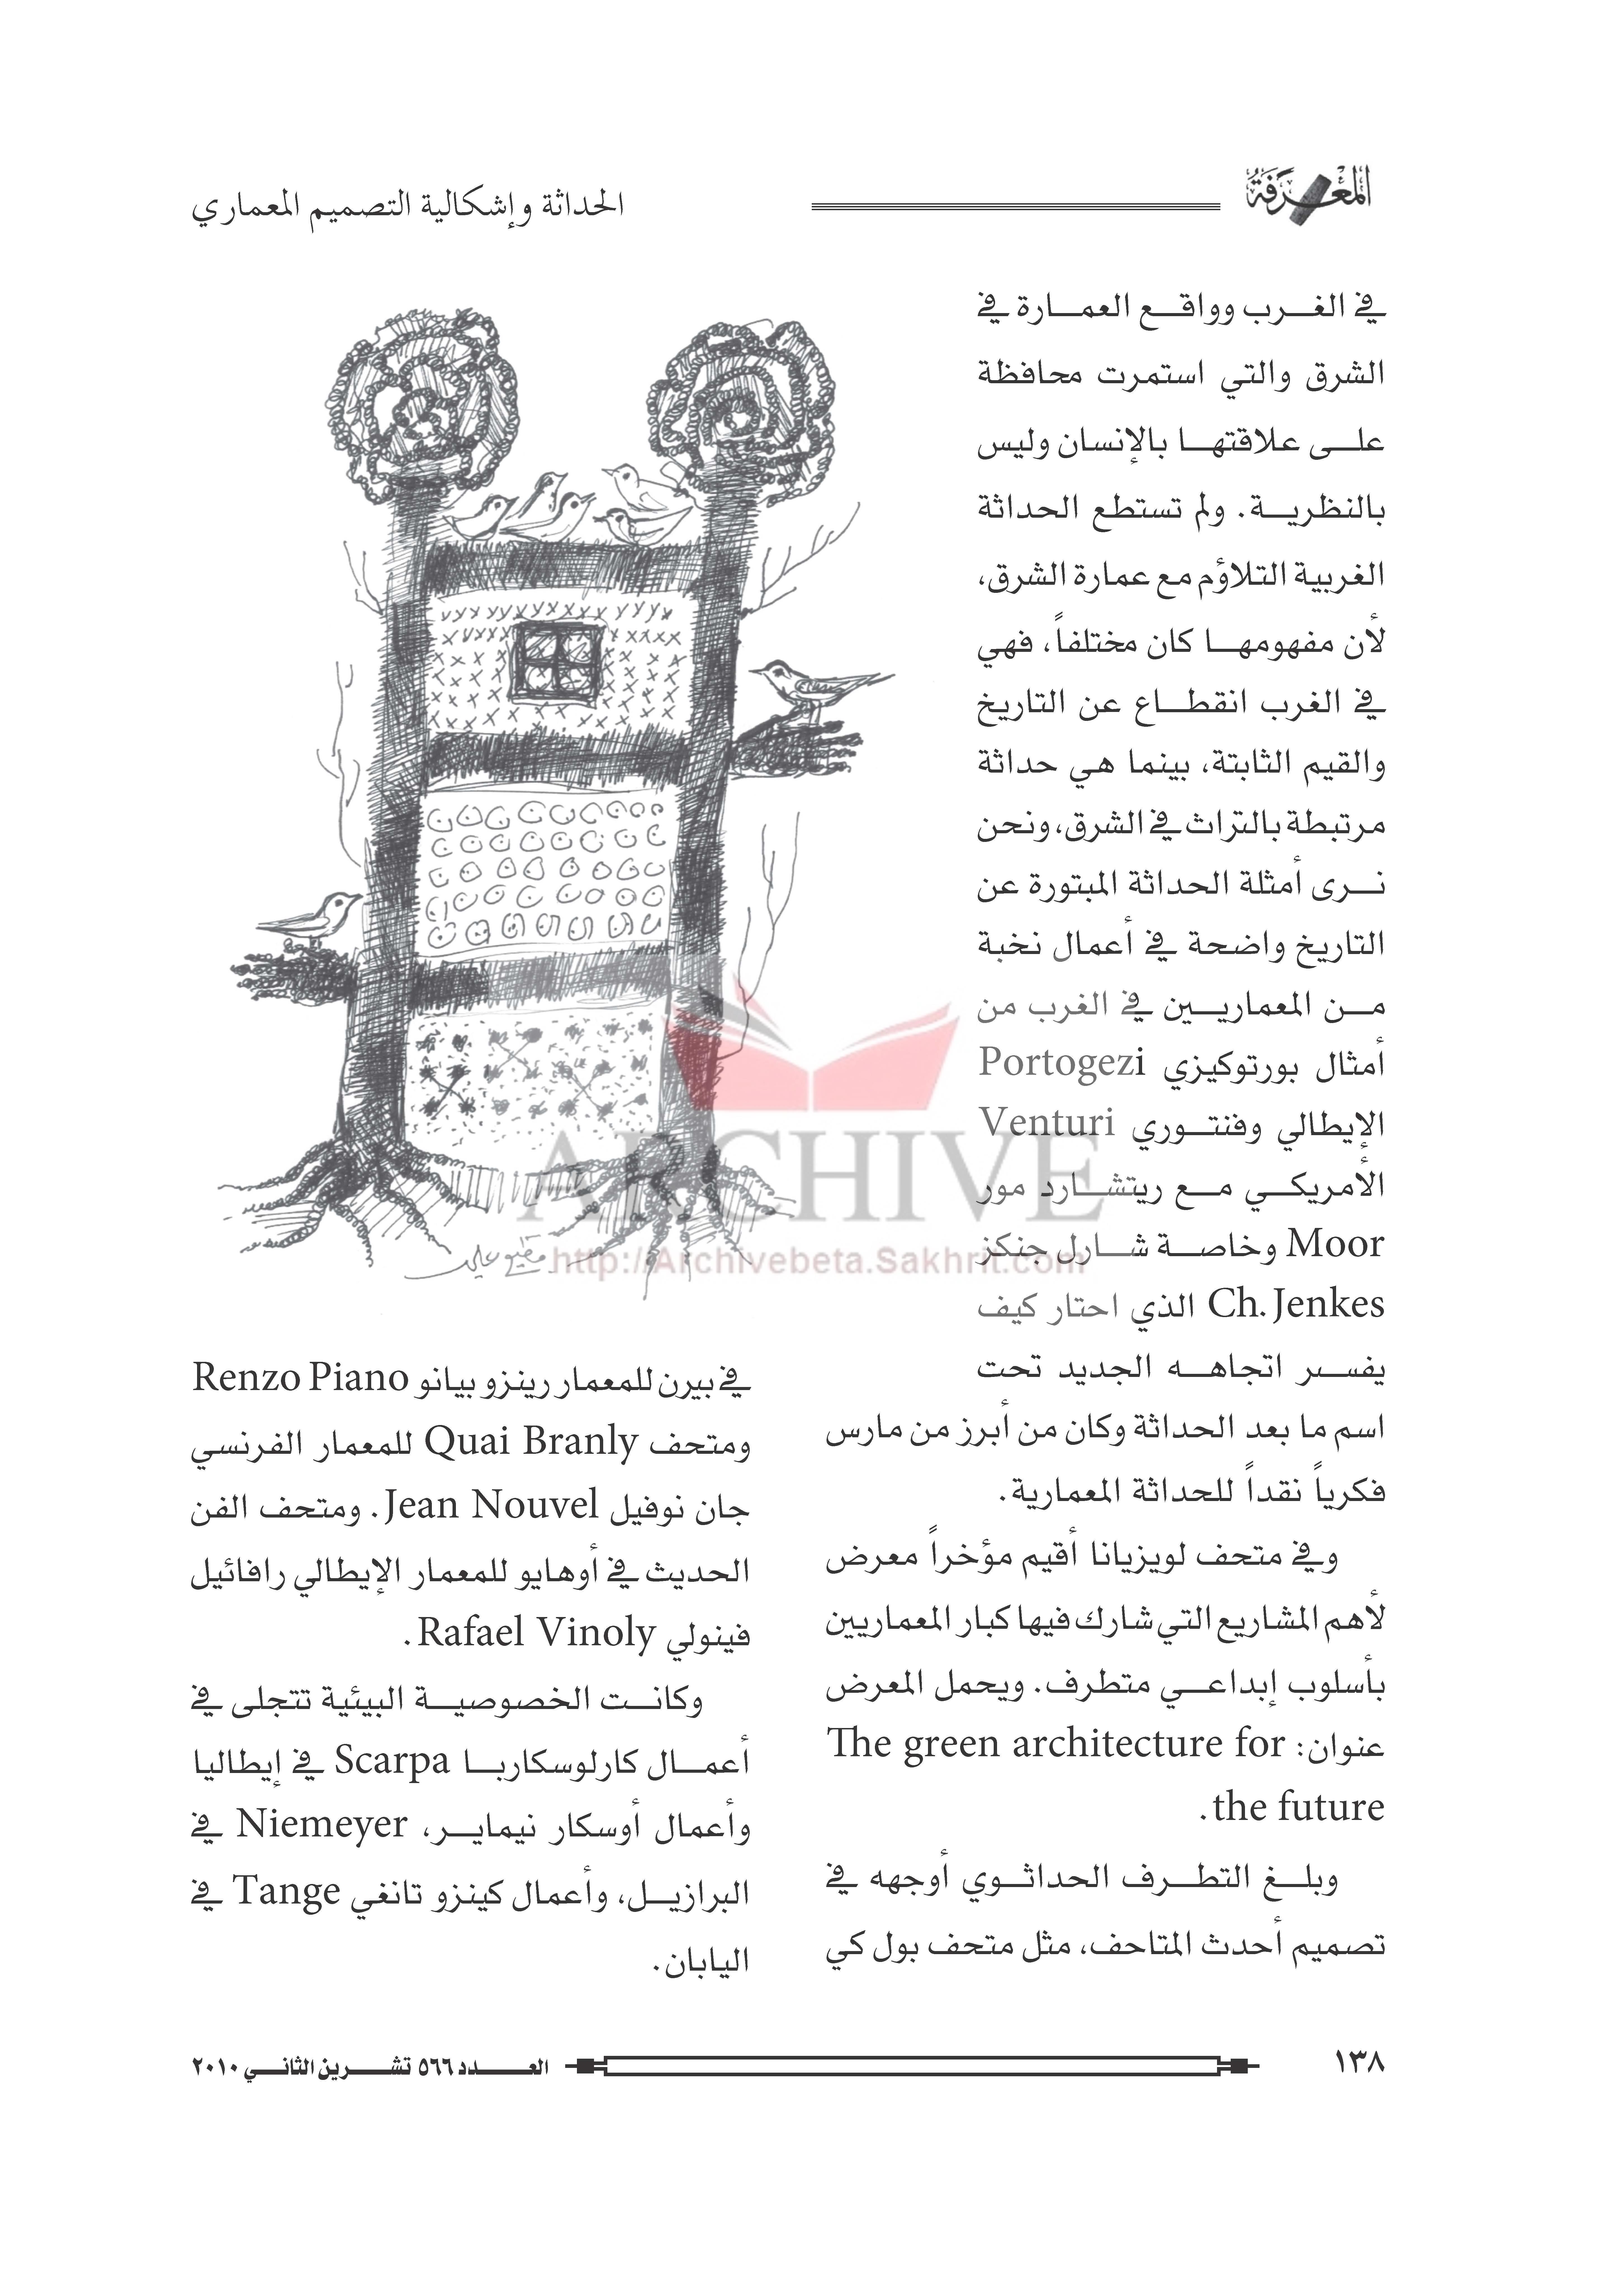 المعرفة
الحداثة وإشكالية التصميم المعماري
في الغرب وواقع العمارة في
الشرق والتي استمرت محافظة
على علاقتها بالإنسان وليس
بالنظرية. ولم تستطع الحداثة
الغربية التلاؤم مع عمارة الشرق،
لأن مفهومها كان مختلفاً، فهي
في الغرب انقطاع عن التاريخ
والقيم الثابتة، بينما هي حداثة
مرتبطة بالتراث في الشرق، ونحن
نرى أمثلة الحداثة المبتورة عن
التاريخ واضحة في أعمال نخبة
من المعماريين في الغرب من
أمثال بورتوكيزي Portogezi
الإيطالي وفنتوري Venturi
الأمريكي مع ريتشارد مور
Moor وخاصة شارل جنكز
Ch. Jenkes الذي احتار كيف
يفسر اتجاهه الجديد تحت
اسم ما بعد الحداثة وكان من أبرز من مارس
فكرياً نقداً للحداثة المعمارية.
وفي متحف لويزيانا أقيم مؤخراً معرض
لأهم المشاريع التي شارك فيها كبار المعماريين
بأسلوب إبداعي متطرف. ويحمل المعرض
عنوان: The green architecture for
the future.
وبلغ التطرف الحداثوي أوجهه في
تصميم أحدث المتاحف، مثل متحف بول كي
في بيرن للمعمار رينزو بيانو Renzo Piano
ومتحف Quai Branly للمعمار الفرنسي
جان نوفيل Jean Nouvel. ومتحف الفن
الحديث في أوهايو للمعمار الإيطالي رافائيل
فينولي Rafael Vinoly.
وكانت الخصوصية البيئية تتجلى في
أعمال كارلوسكاربا Scarpa في إيطاليا
وأعمال أوسكار نيماير، Niemeyer في
البرازيل، وأعمال كينزو تانغي Tange في
اليابان.
ARCHIVE
http://Archivebeta.Sakhrit.com
١٣٨
العدد ٥٦٦ تشرين الثاني ٢٠١٠